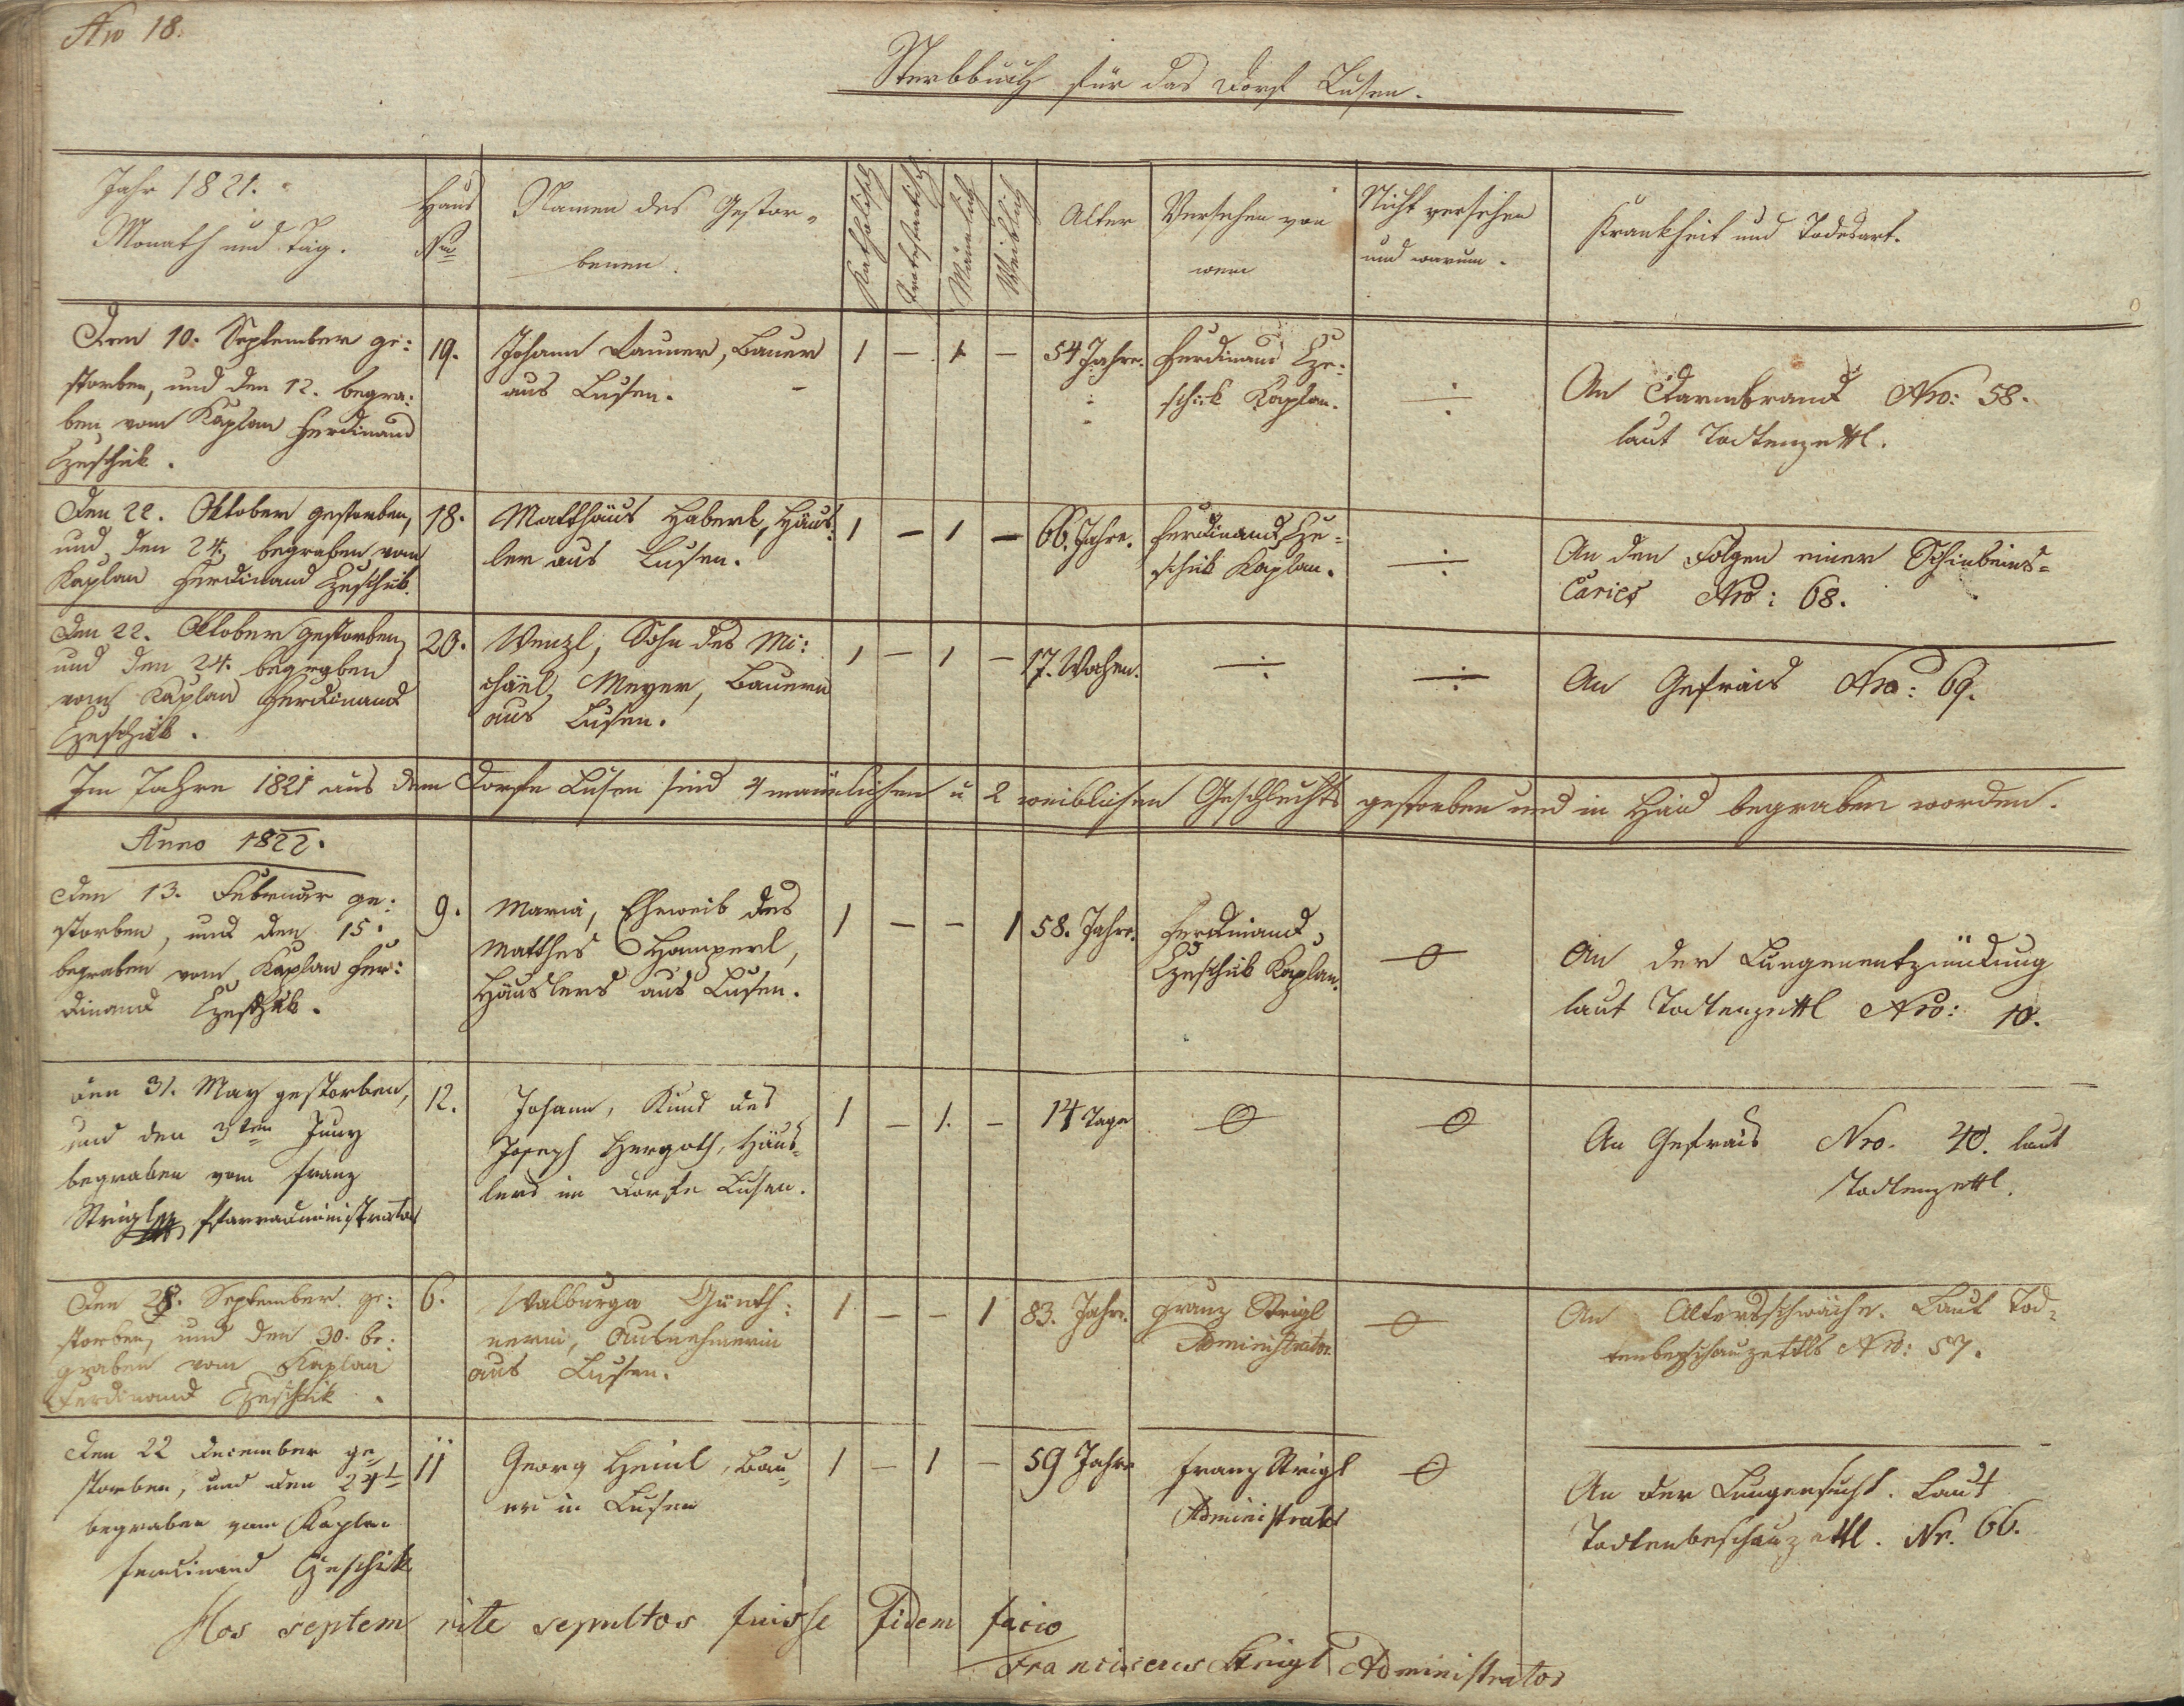 Nro 18.
Sterbbuch für das Dorf Lusen.
Jahr 1821.
Monath und Tag.
Haus
Nro
Namen des Gestor-
benen.
Katholisch
Protestantisch
Männlich
Weiblich
Alter
Versehen von
wem
Nicht versehen
und warum.
Krankheit und Todesart.
Den 10. September ge:
storben, und den 12. begra:
ben vom Kaplan Ferdinand
Czeschik.
19.
Johann Launer, Bauer
aus Lusen. -
1 - 1 -
54 Jahre.
Ferdinand Cze:
schik Kaplan.
÷
An Darmbrand Nro: 58.
laut Todtenzettl.
Den 22. Oktober gestorben,
und den 24. begraben vom
Kaplan Ferdinand Czeschik.
18.
Matthäus Haberl, Häus:
ler aus Lusen.
1 - 1 -
66. Jahre.
Ferdinand Cze=
schik Kaplan.
÷
An den Folgen einer Schinbeins=
Caries Nro: 68.
Den 22. Oktober gestorben,
und den 24. begraben
vom Kaplan Ferdinand
Czeschik.
20.
Wenzl, Sohn des Mi:
chäel Meyer, Bauern
aus Lusen.
1 - 1 -
17. Wochen.
÷
÷
An Gefrais Nro: 69.
Im Jahre 1821 aus dem Dorfe Lusen sind 4 männlichen u 2 weiblichen Geschlechts gestorben und in Haid begraben worden.
Anno 1822.
Den 13. Februar ge:
storben, und den 15.
begraben vom Kaplan Fer:
dinand Czeschik.
9.
Maria, Eheweib des
Matthes Hamperl,
Häuslers aus Lusen.
1 - - 1
58. Jahre.
Ferdinand
Czeschik Kaplan.
An der Lungenentzündung
laut Todtenzettl Nro: 10.
den 31. May gestorben,
und den 3ten Juny
begraben vom Franz
Strigl Pfarradministrator
12.
Johann, Kind des
Joseph Hergoth, Häus-
lers im Dorfe Lusen.
1 - 1. -
14 Tage
An Gefrais Nro. 40. laut
Todtenzettl.
Den 28. September ge:
storben, und den 30. be:
graben vom Kaplan
Ferdinand Czeschik.
6.
Walburga Günth:
nerin, Ausnehmerin
aus Lusen.
1 - - 1
83. Jahre.
Franz Strigl
Administrator
An Altersschwäche. Laut Tod=
tenbeschauzettls Nro: 57.
Den 22 December ge
storben, und den 24t
begraben vom Kaplan
Ferdinand Czeschik
11
Georg Heinl, Bau
er in Lusen
1 - 1 -
59 Jahre
Franz Strigl
Administrator
An der Lungensucht. Laut
Todtenbeschauzettl. Nr. 66.
Hos septem rite sepultos fuisse fidem facio
Franciscus Strigl Administrator